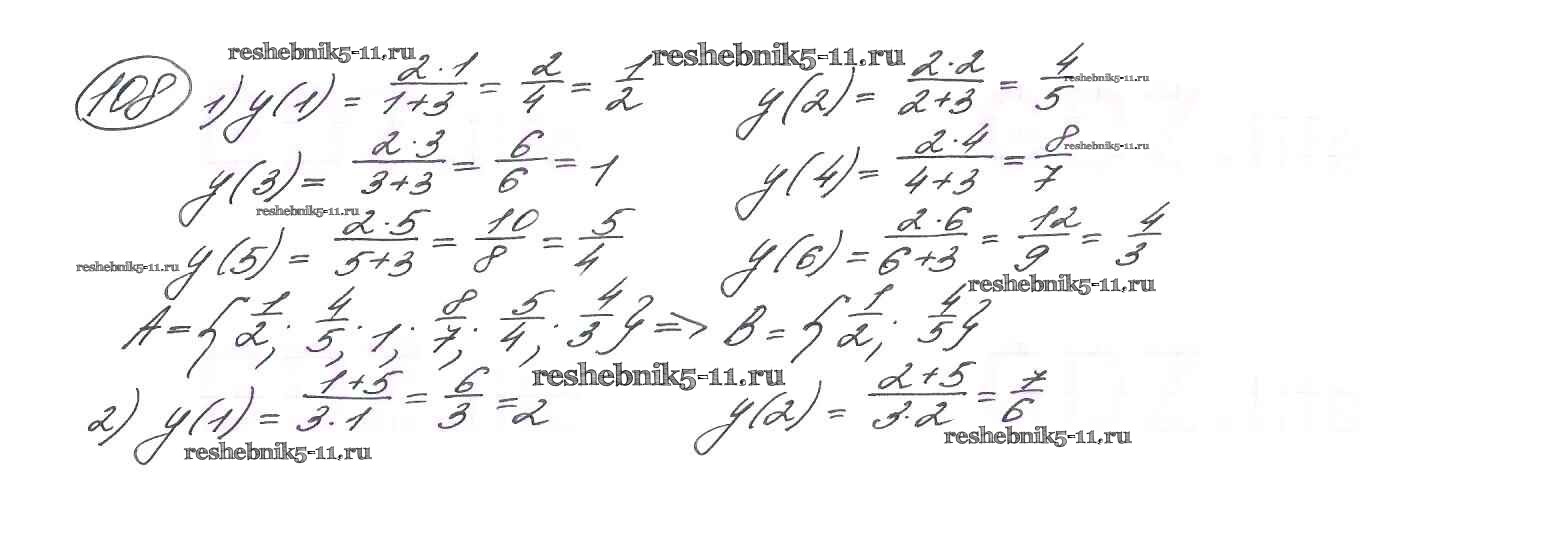 reshebnik5-11.ru reshebnik5-11.ru
108 1) y(1) = 2·1/1+3 = 2/4 = 1/2 y(2) = 2·2/2+3 = 4/5 reshebnik5-11.ru
y(3) = 2·3/3+3 = 6/6 = 1 y(4) = 2·4/4+3 = 8/7 reshebnik5-11.ru
reshebnik5-11.ru
reshebnik5-11.ru y(5) = 2·5/5+3 = 10/8 = 5/4 y(6) = 2·6/6+3 = 12/9 = 4/3
reshebnik5-11.ru
A = {1/2; 4/5; 1; 8/7; 5/4; 4/3} => B = {1/2; 4/5}
reshebnik5-11.ru
2) y(1) = 1+5/3·1 = 6/3 = 2 y(2) = 2+5/3·2 = 7/6
reshebnik5-11.ru reshebnik5-11.ru